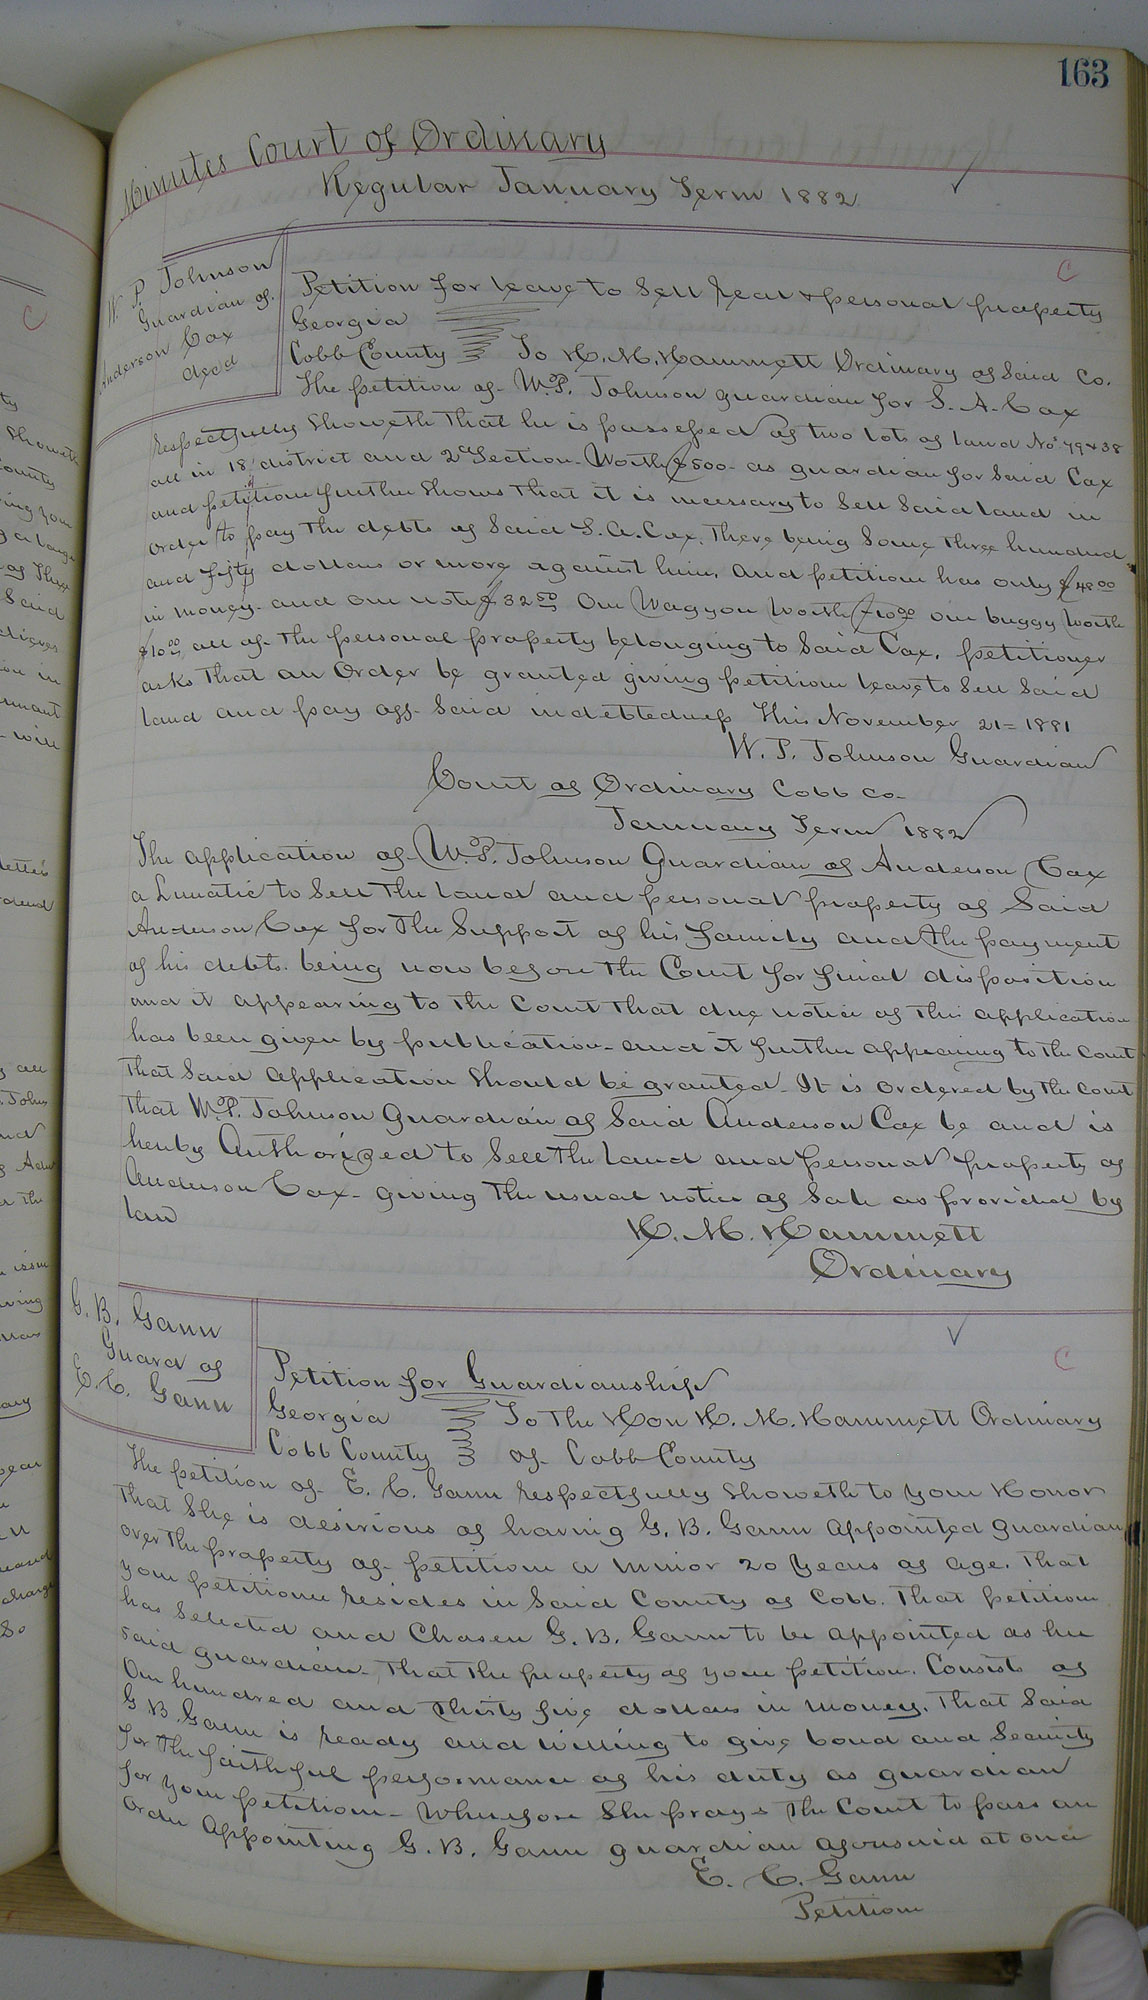 163
Minutes Court of Ordinary
Regular January Term 1882
W. P. Johnson
Guardian of
Anderson Cox
decd
C
Petition for leave to Sell real & personal property
Georgia
Cobb County To H. M. Hammett Ordinary of Said Co.
The petition of W. P. Johnson guardian for S. A. Cox
respectfully Showeth that he is possessed of two lots of land Nos 79 & 38
all in 18 district and 2d Section - Worth $500 - as guardian for Said Cox
and petitioner further Shows that it is necessary to Sell Said land in
order to pay the debts of Said S. A. Cox, there being Some three hundred
and fifty dollars or more against him, and petitioner has only $48.00
in money - and one note $32.50 One Waggon Worth $10.00 one buggy Worth
$10.00, all of the personal property belonging to Said Cox. petitioner
asks that an Order be granted giving petitioner leave to Sell Said
land and pay off Said indebtedness This November 21 - 1881
W. P. Johnson Guardian
Court of Ordinary Cobb Co.
January Term 1882
The application of W. P. Johnson Guardian of Anderson Cox
a Lunatic to Sell the land and personal property of Said
Anderson Cox for the Support of his family and the payment
of his debts. being now before the Court for final disposition
and it appearing to the Court that due notice of this application
has been given by publication - and it further appearing to the Court
that Said application Should be granted - It is ordered by the Court
that W. P. Johnson Guardian of Said Anderson Cox be and is
hereby Authorized to Sell the land and personal property of
Anderson Cox - giving the usual notice of Sale as provided by
law
H. M. Hammett
Ordinary
G. B. Gann
Guard of
E. C. Gann
C
Petition for Guardianship
Georgia To The Hon H. M. Hammett Ordinary
Cobb County of Cobb County
The petition of E. C. Gann respectfully Showeth to your Honor
that She is desirious of having G. B. Gann appointed guardian
over the property of petitioner a minor 20 years of age. that
your petitioner resides in Said County of Cobb. That petitioner
has Selected and Chosen G. B. Gann to be appointed as her
said guardian - that the property of your petitioner. Consists of
One hundred and thirty five dollars in money. That Said
G. B. Gann is ready and willing to give bond and Security
for the faithful performance of his duty as guardian
for your petitioner - Wherefore She prays the Court to pass an
order appointing G. B. Gann guardian aforesaid at once
E. C. Gann
Petitioner